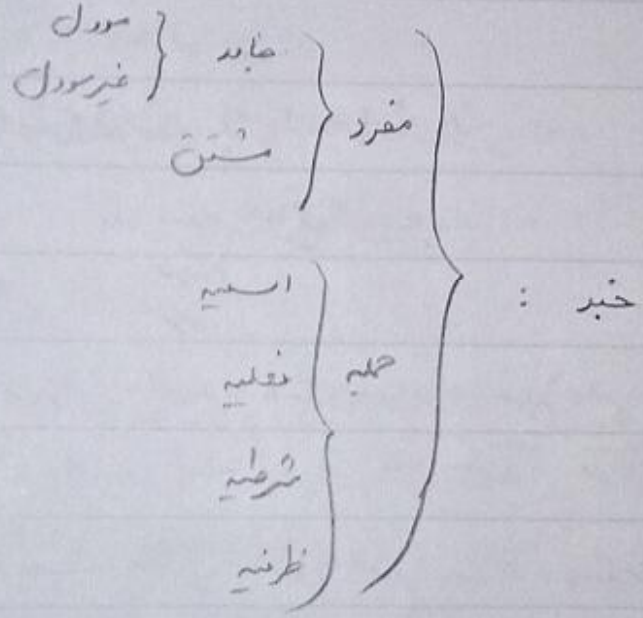 خبر :
مفرد
جامد
موول
غیر موول
مشتق
جمله
اسمیه
فعلیه
شرطیه
ظرفیه